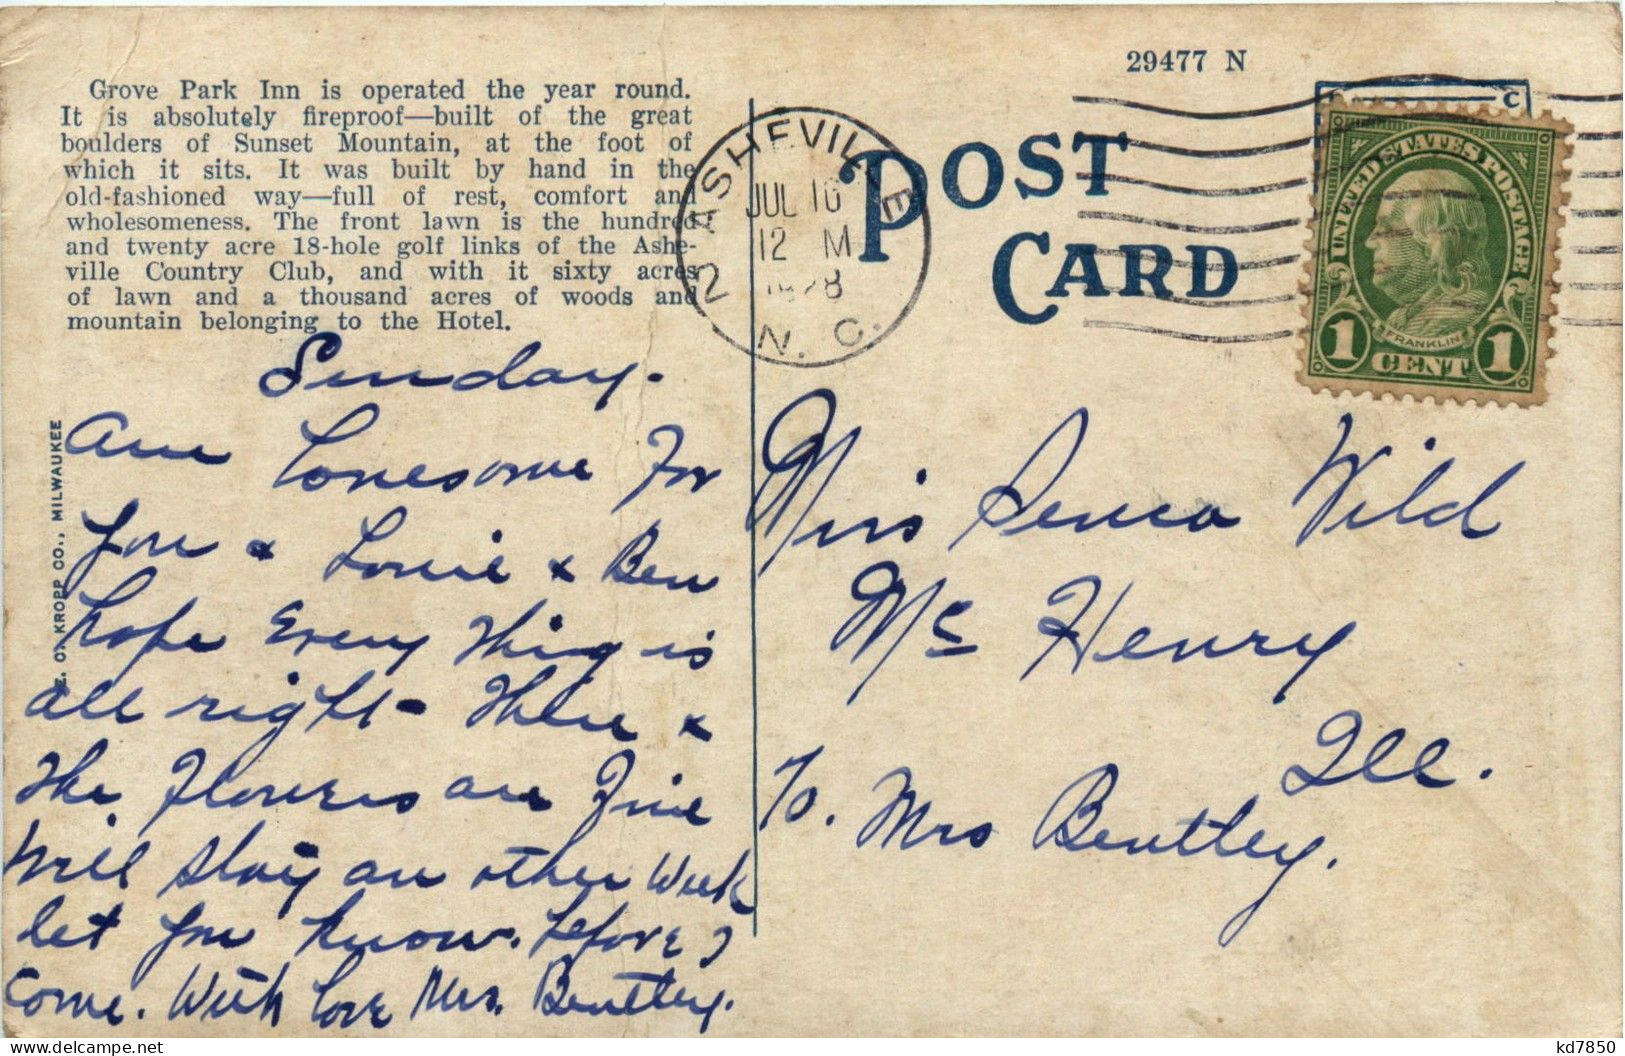 29477 N
Grove Park Inn is operated the year round.
It is absolutely fireproof—built of the great
boulders of Sunset Mountain, at the foot of
which it sits. It was built by hand in the
old-fashioned way—full of rest, comfort and
wholesomeness. The front lawn is the hundred
and twenty acre 18-hole golf links of the Ashe-
ville Country Club, and with it sixty acres
of lawn and a thousand acres of woods and
mountain belonging to the Hotel.
ASHEVILLE
JUL 16
12 M
1928
N. C.
2
POST
CARD
C
UNITED STATES POSTAGE
FRANKLIN
1 CENT 1
E. C. KROPP CO., MILWAUKEE
Sunday.
am Lonesome For
you & Louie & Ben
hope Every Thing is
all right - There &
The Flowers are Fine
Will stay an other Week
let you know. before I
come. With Love Mrs. Bentley.
Miss Wild
Mc Henry
Ill.
To. Mrs Bentley.
kd7850